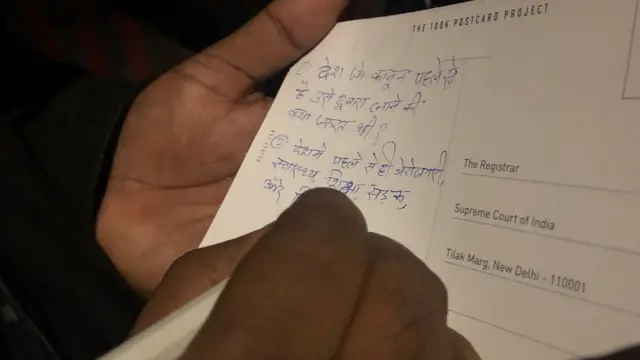 THE 100K POSTCARD PROJECT
① देश जो कानून पहले से
है उसे दूबारा लाने की
क्या जरूरत थी?
② देशमे पहले से ही बेरोजगारी,
स्वास्थ्य, शिक्षा, सड़क,
और
The Registrar
Supreme Court of India
Tilak Marg, New Delhi – 110001